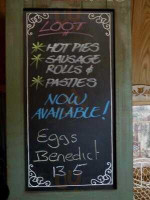 LOOT
HOT PIES
SAUSAGE
ROLLS &
PASTIES
NOW
AVAILABLE!
Eggs
Benedict
13.5